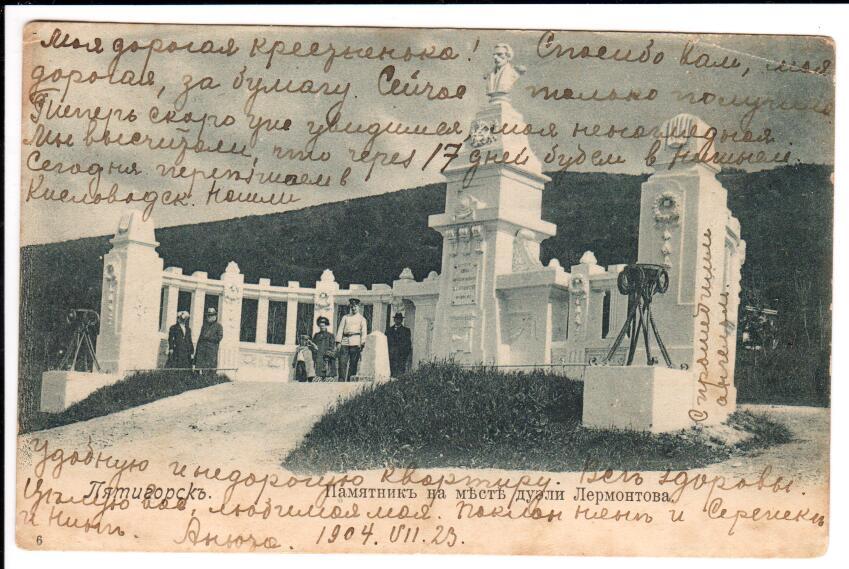 Моя дорогая крестненька! Спасибо вам, моя
дорогая, за бумагу. Сейчас только получила
Теперь скоро уже увидимся, моя ненаглядная
Мы высчитали, что через 17 дней будем в Нижнем.
Сегодня переезжаем в
Кисловодск. Нашли
удобную и недорогую квартиру. Все здоровы.
Пятигорскъ. Памятникъ на мѣстѣ дуэли Лермонтова.
Целую вас, любимая моя. Поклон и
и Анюта. 1904. VII. 23.
С прошедшим
ангелом.
6